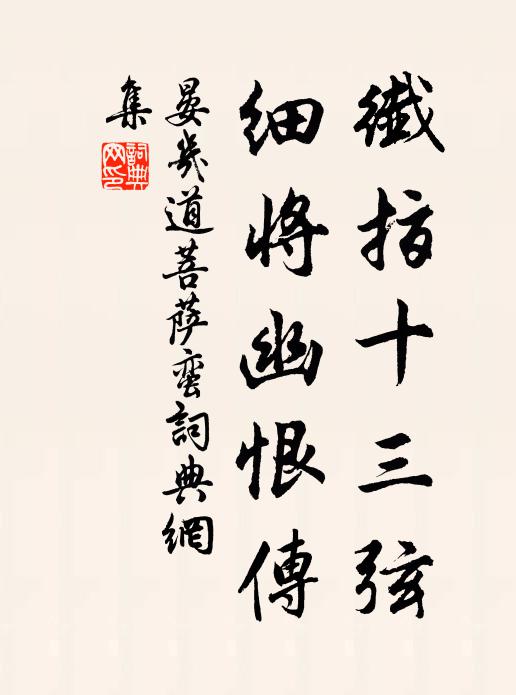 纖指十三弦
細將幽恨傳
晏幾道菩薩蠻詞典網
集
詞典
网印